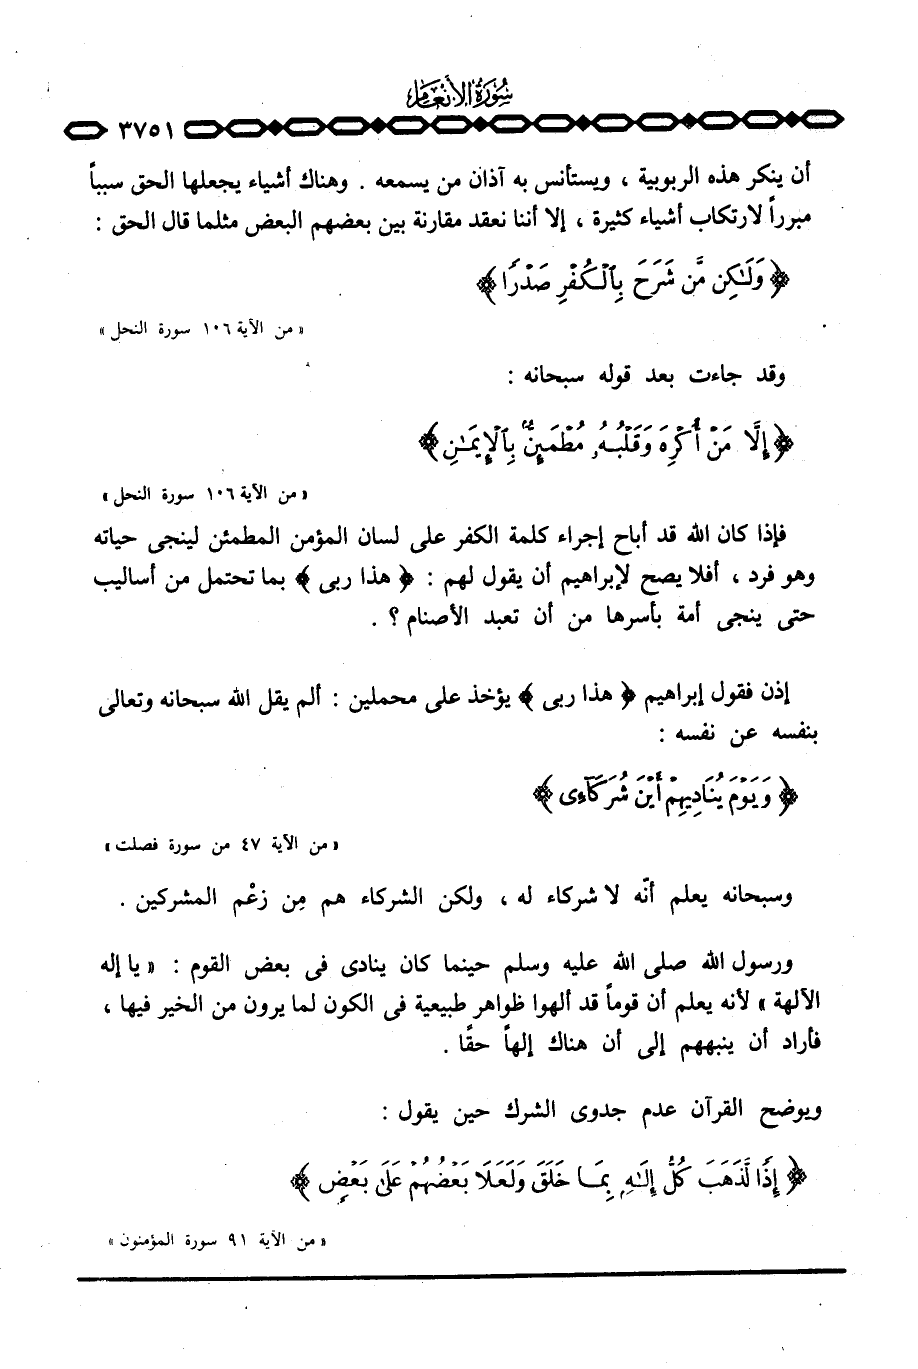 سورة الأنعام
٣٧٥١
أن ينكر هذه الربوبية ، ويستأنس به آذان من يسمعه . وهناك أشياء يجعلها الحق سبباً
مبرراً لارتكاب أشياء كثيرة ، إلا أننا نعقد مقارنة بين بعضهم البعض مثلما قال الحق :
﴿ وَلَٰكِن مَّن شَرَحَ بِٱلْكُفْرِ صَدْرًا ﴾
« من الآية ١٠٦ سورة النحل »
وقد جاءت بعد قوله سبحانه :
﴿ إِلَّا مَنْ أُكْرِهَ وَقَلْبُهُۥ مُطْمَئِنٌّۢ بِٱلْإِيمَٰنِ ﴾
« من الآية ١٠٦ سورة النحل »
فإذا كان الله قد أباح إجراء كلمة الكفر على لسان المؤمن المطمئن لينجى حياته
وهو فرد ، أفلا يصح لإبراهيم أن يقول لهم : ﴿ هذا ربى ﴾ بما تحتمل من أساليب
حتى ينجى أمة بأسرها من أن تعبد الأصنام ؟ .
إذن فقول إبراهيم ﴿ هذا ربى ﴾ يؤخذ على محملين : ألم يقل الله سبحانه وتعالى
بنفسه عن نفسه :
﴿ وَيَوْمَ يُنَادِيهِمْ أَيْنَ شُرَكَآءِى ﴾
« من الآية ٤٧ من سورة فصلت »
وسبحانه يعلم أنّه لا شركاء له ، ولكن الشركاء هم مِن زعْم المشركين .
ورسول الله صلى الله عليه وسلم حينما كان ينادى فى بعض القوم : « يا إله
الآلهة » لأنه يعلم أن قوماً قد ألهوا ظواهر طبيعية فى الكون لما يرون من الخير فيها ،
فأراد أن ينبههم إلى أن هناك إلهاً حقًا .
ويوضح القرآن عدم جدوى الشرك حين يقول :
﴿ إِذًا لَّذَهَبَ كُلُّ إِلَٰهٍۭ بِمَا خَلَقَ وَلَعَلَا بَعْضُهُمْ عَلَىٰ بَعْضٍ ﴾
« من الآية ٩١ سورة المؤمنون »